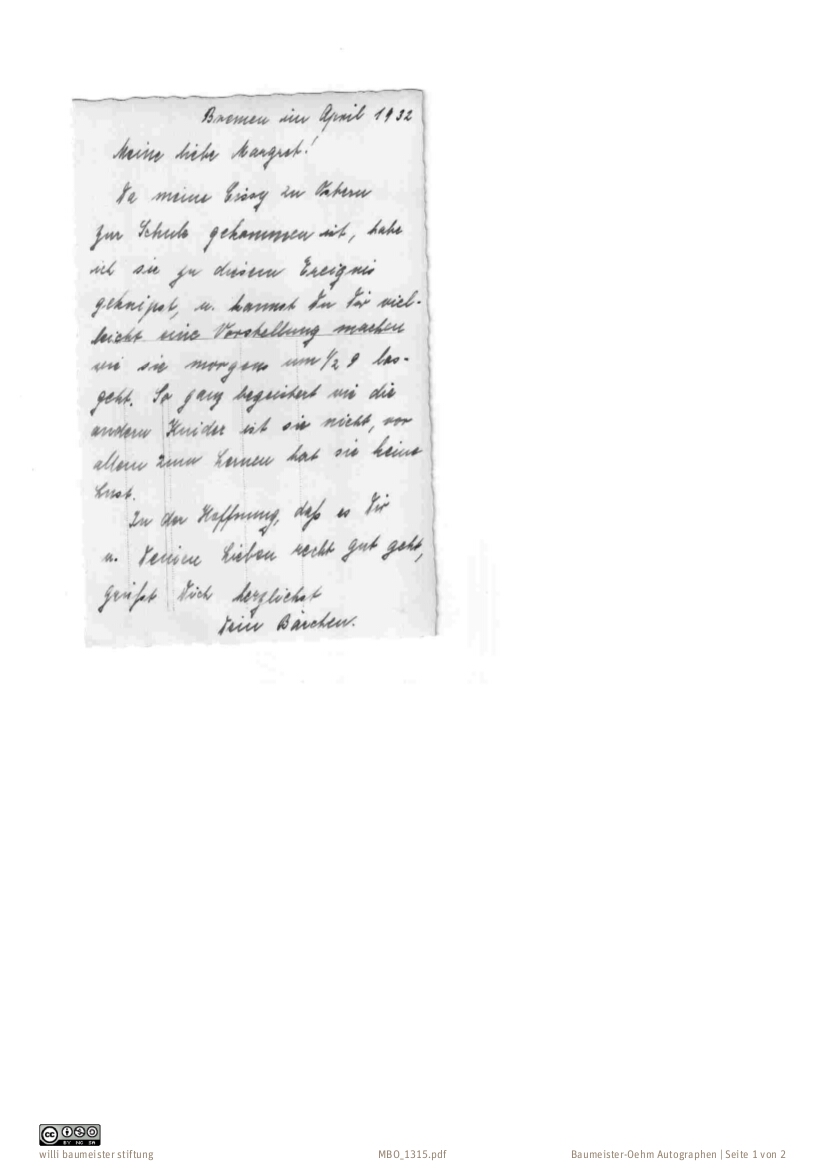 Bremen im April 1932
Meine liebe Margret!
Da meine Cissy zu Ostern
zur Schule gekommen ist, habe
ich sie zu diesem Ereignis
geknipst, u. kannst Du Dir viel-
leicht eine Vorstellung machen
wie sie morgens um 1/2 9 los-
geht. So ganz begeistert wie die
andern Kinder ist sie nicht, vor
allem zum Lernen hat sie keine
Lust.
In der Hoffnung, daß es Dir
u. Deinen Lieben recht gut geht,
grüßt Dich herzlichst
Dein Bärchen.
CC BY NC SA
willi baumeister stiftung
MBO_1315.pdf
Baumeister-Oehm Autographen | Seite 1 von 2